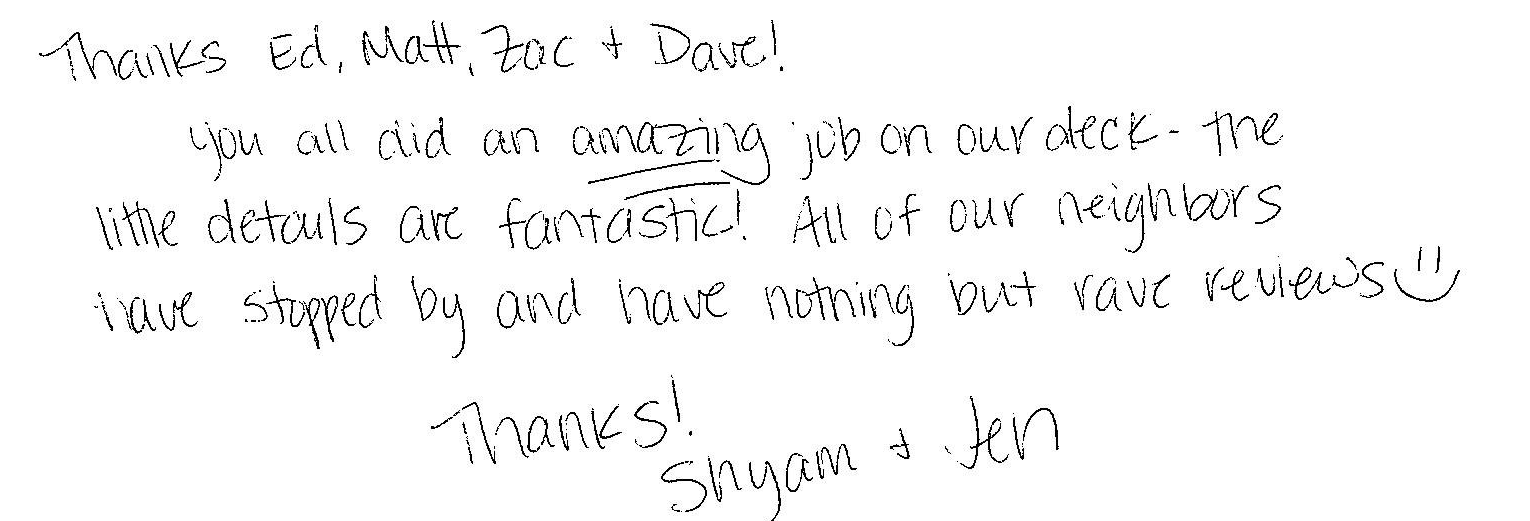 Thanks Ed, Matt, Zac + Dave!
you all did an amazing job on our deck - the
little details are fantastic! All of our neighbors
have stopped by and have nothing but rave reviews
Thanks!
Shyam + Jen